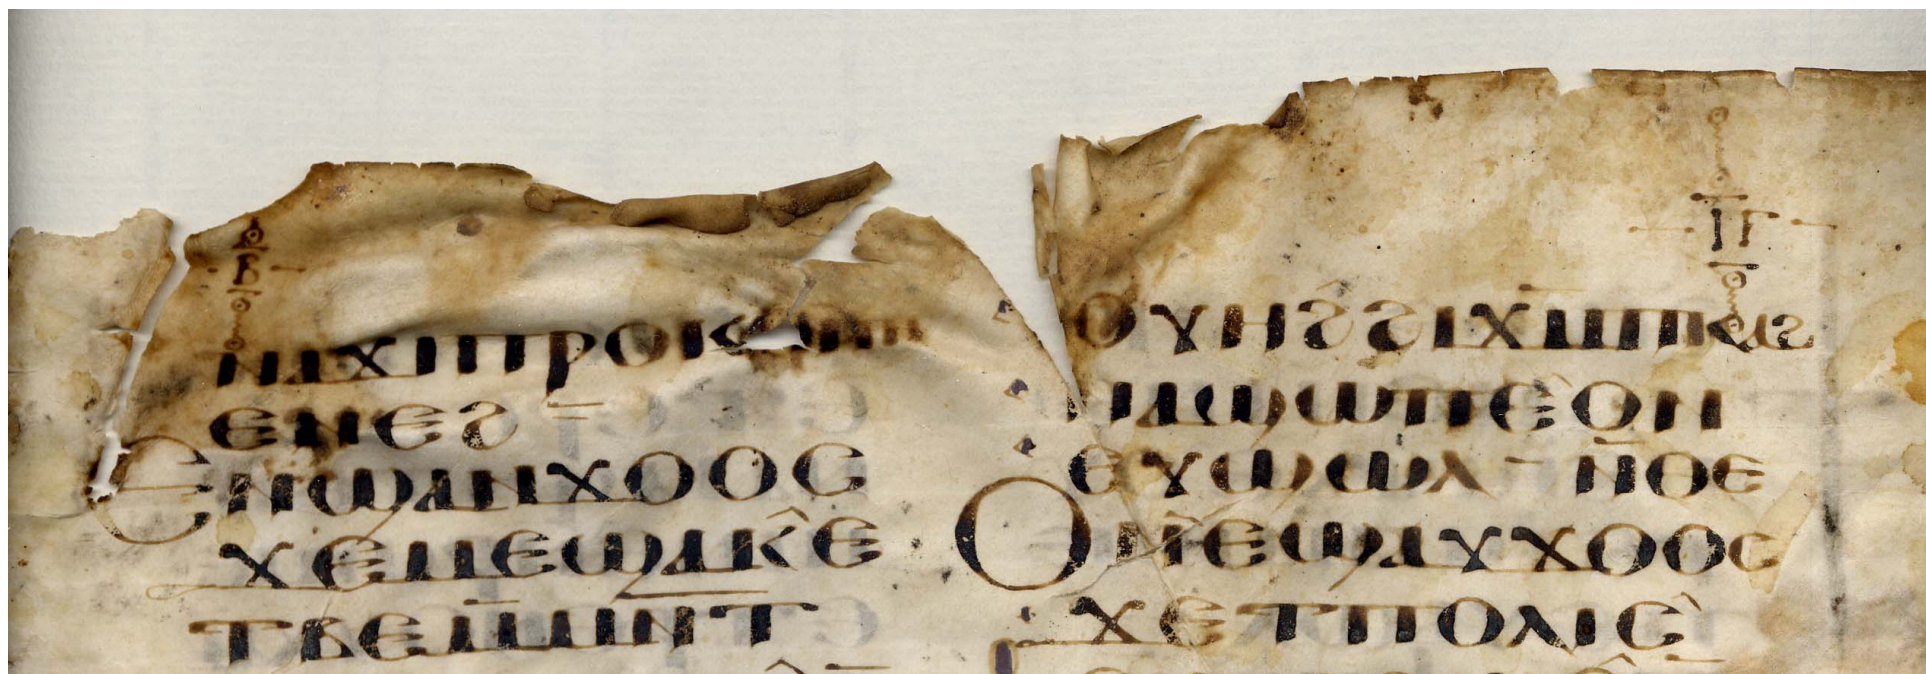 Ⲃ
ⲛⲁϫⲓⲡⲣⲟⲕ
ⲉⲛⲉϩ
Ⲉⲛϣⲁⲛϫⲟⲟⲥ
ϫⲉⲙⲉϣⲁⲕⲉ̂
ⲧⲃⲉⲁⲙ̄ⲛⲧ
ⲓ̄ⲅ̄
ⲟⲩⲏϩϩⲓϫⲙ̄ⲡⲕⲁϩ
ⲛⲁϣⲱⲡⲉ̀ⲟⲛ
ⲉⲩϣⲱⲗ ⲛ̄ⲑⲉ
Ⲟⲛⲉ̂ϣⲁⲩϫⲟⲟⲥ
ϫⲉⲧⲡⲟⲗⲓⲥ̀